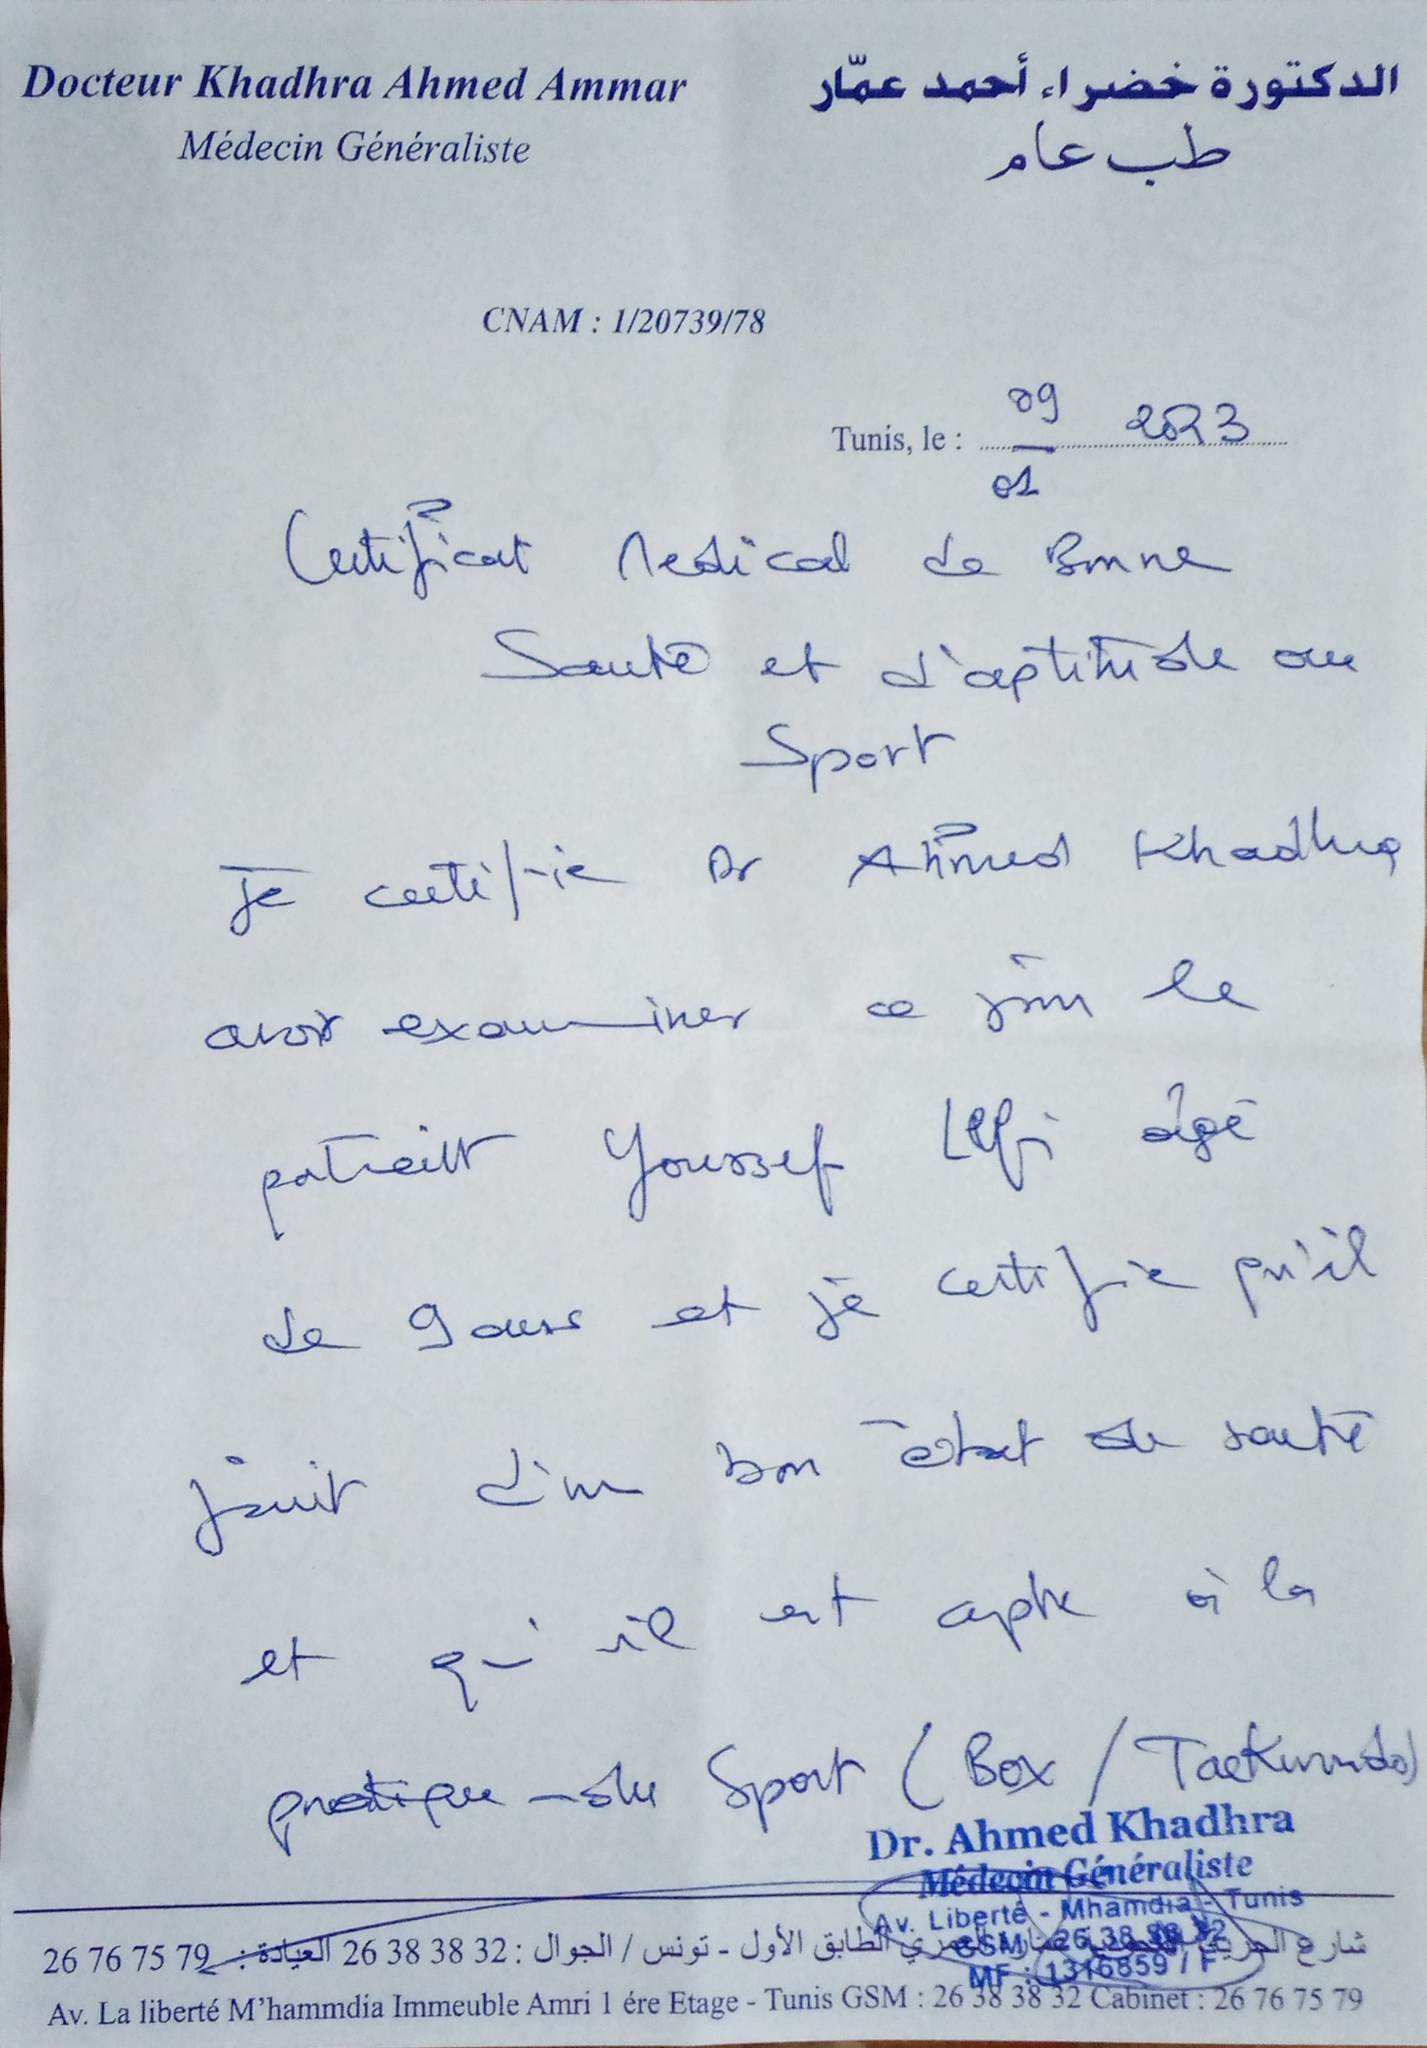 Docteur Khadhra Ahmed Ammar
Médecin Généraliste
الدكتورة خضراء أحمد عمّار
طب عام
CNAM : 1/20739/78
Tunis, le : 09/01 2023
Certificat Medical de Bonne
Santé et d'aptitude au
Sport
Je certifie Dr Ahmed Khadhra
avoir examiner ce jour le
patient Youssef
âgé
de 9 ans et je certifie qu'il
jouit d'un bon état de santé
et qu'il est apte à la
pratique du Sport (Box / Taekwondo)
Dr. Ahmed Khadhra
Médecin Généraliste
Av. Liberté - Mhamdia - Tunis
GSM : 26 38 38 32
MF : 1316859 / F
شارع الحرية الطابق الأول - تونس / الجوال : 32 38 38 26 العيادة : 79 75 76 26
Av. La liberté M'hammdia Immeuble Amri 1 ére Etage - Tunis GSM : 26 38 38 32 Cabinet : 26 76 75 79